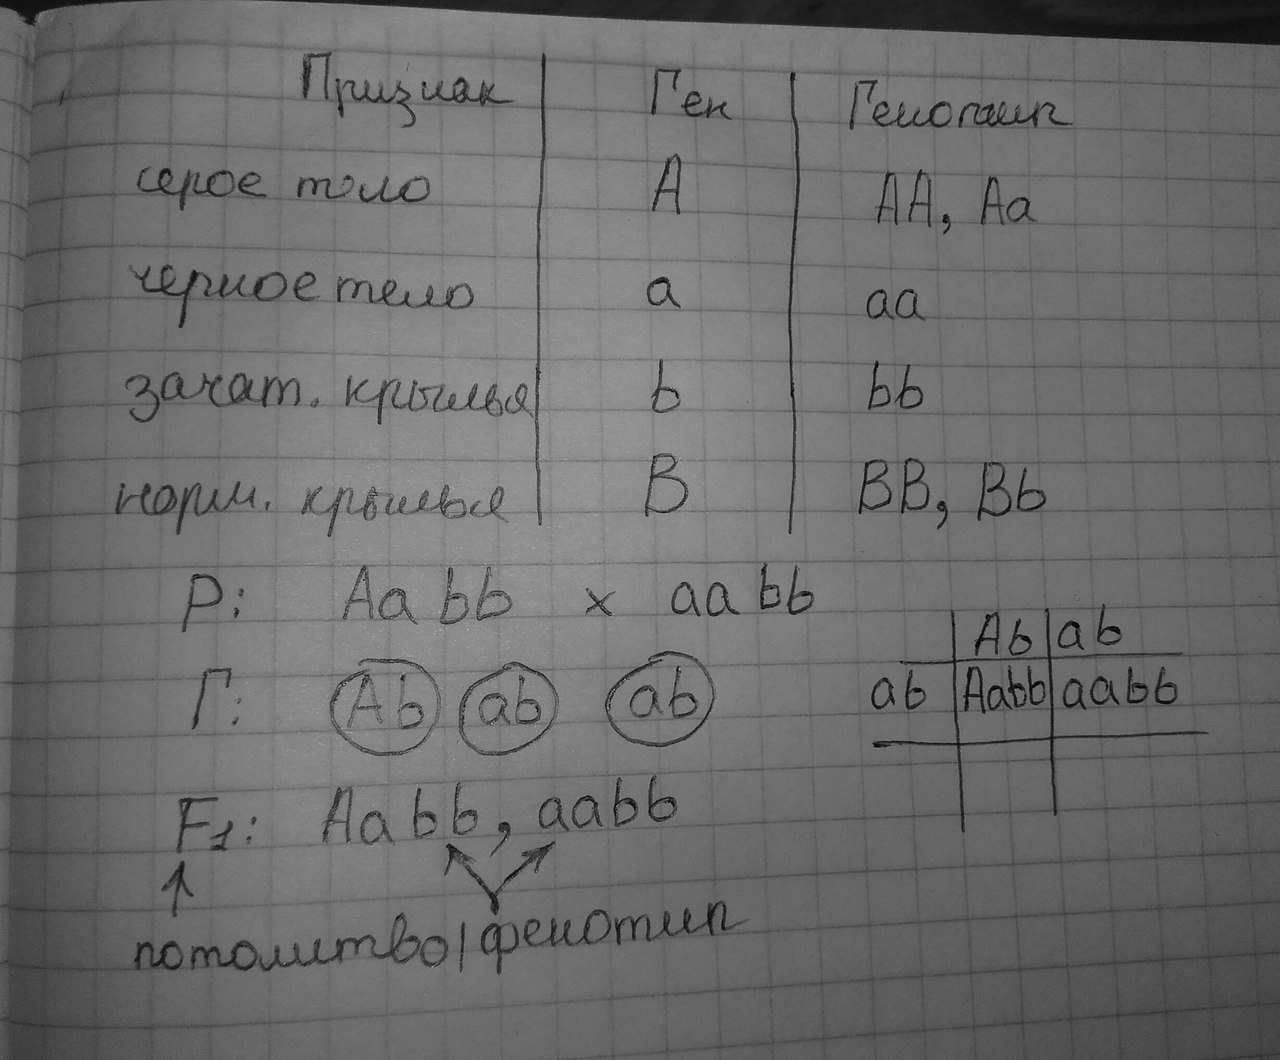 Признак Ген Генотип
серое тело A AA, Aa
черное тело a aa
зачат. крылья b bb
норм. крылья B BB, Bb
P: Aa bb x aa bb
Г: Ab ab ab
F1: Aa bb, aabb
потомтво | фенотип
Ab ab
ab Aabb aabb